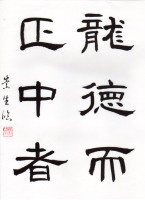 龍德而
正中者